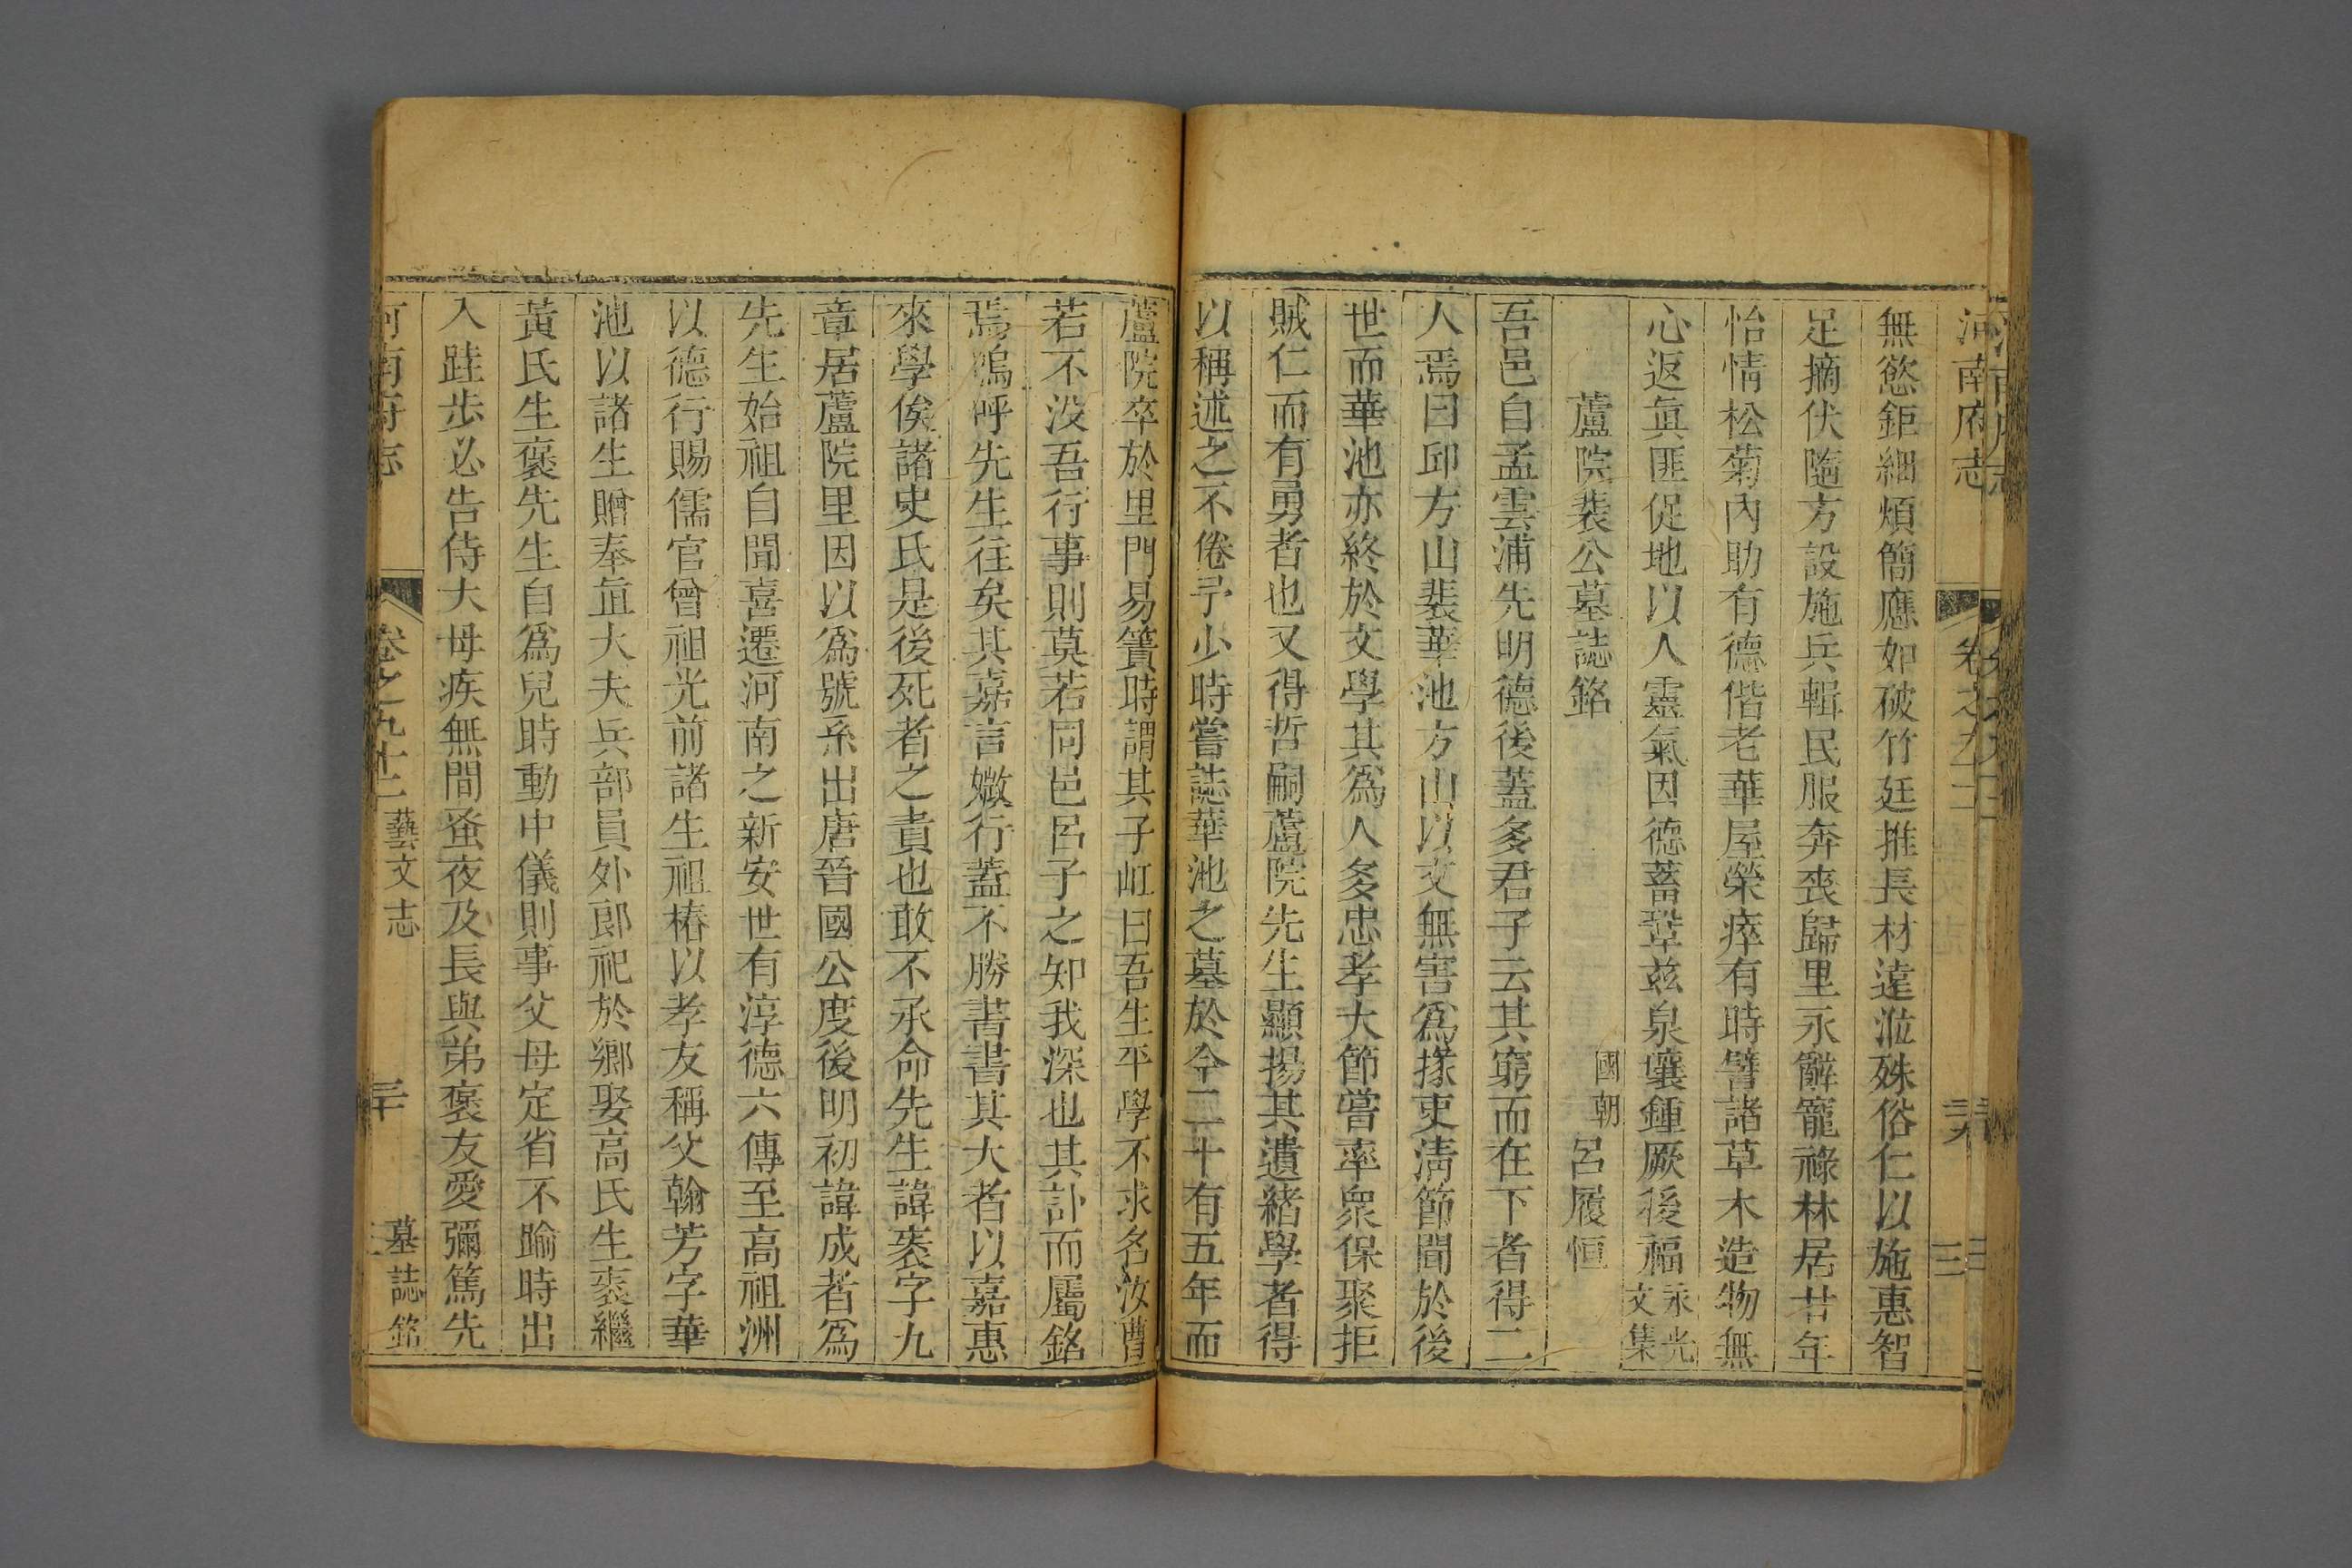 河南府志
卷之九十二
無慾鉅細煩簡應如破竹廷推長材遠涖殊俗仁以施惠智
足摘伏隨方設施兵輯民服奔喪歸里永辭寵祿林居廿年
怡情松菊內助有德偕老華屋榮瘁有時譬諸草木造物無
心返眞匪促地以人靈氣因德蓄鞏兹泉壤鍾厥後福永光文集
蘆院裴公墓誌銘
國朝呂履恒
吾邑自孟雲浦先明德後蓋多君子云其窮而在下者得二
人焉曰邱方山裴華池方山以文無害爲掾吏淸節聞於後
世而華池亦終於文學其爲人多忠孝大節嘗率衆保聚拒
賊仁而有勇者也又得哲嗣蘆院先生顯揚其遺緒學者得
以稱述之不倦予少時嘗誌華池之墓於今二十有五年而
蘆院卒於里門易簀時謂其子虹曰吾生平學不求名汝曹
若不没吾行事則莫若同邑呂子之知我深也其訃而屬銘
焉嗚呼先生往矣其嘉言媺行蓋不勝書書其大者以嘉惠
來學俟諸史氏是後死者之責也敢不承命先生諱裘字九
章居蘆院里因以爲號系出唐晉國公度後明初諱成者爲
先生始祖自聞喜遷河南之新安世有淳德六傳至高祖洲
以德行賜儒官曾祖光前諸生祖椿以孝友稱父翰芳字華
池以諸生贈奉直大夫兵部員外郎祀於鄉娶高氏生裘繼
黃氏生褒先生自爲兒時動中儀則事父母定省不踰時出
入跬步必告侍大母疾無間蚤夜及長與弟褒友愛彌篤先
河南府志
卷之九十二
藝文志
三十
墓誌銘